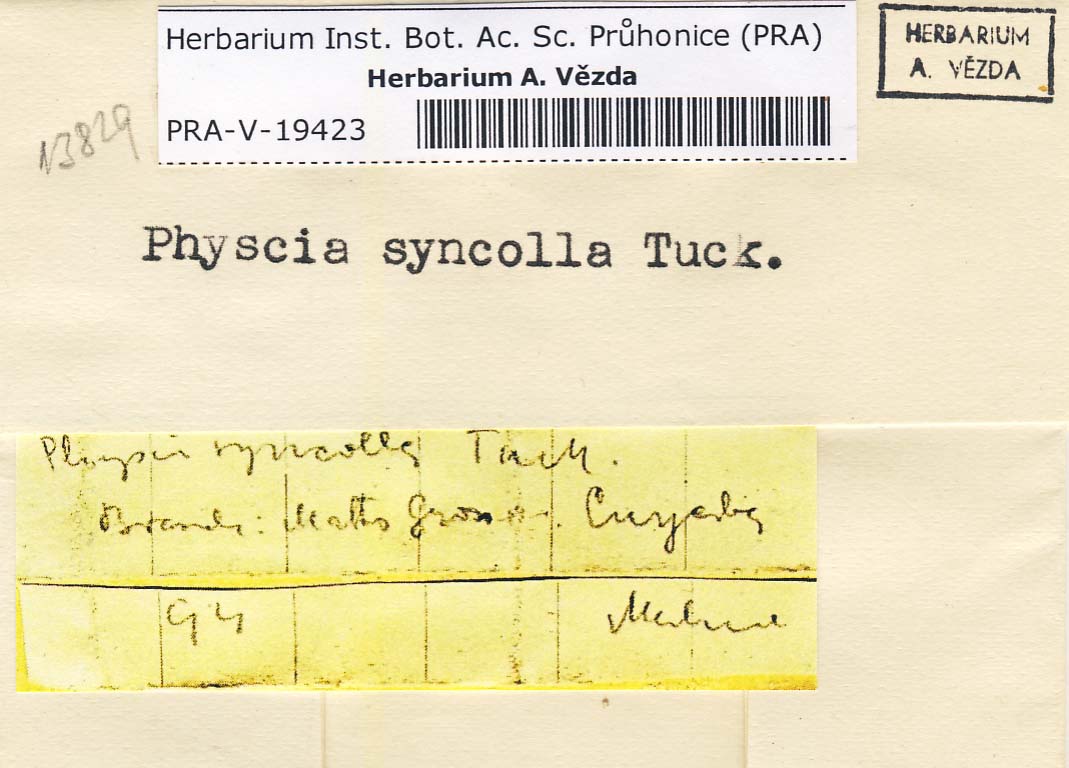 Herbarium Inst. Bot. Ac. Sc. Průhonice (PRA)
Herbarium A. Vězda
PRA-V-19423
HERBARIUM
A. VĚZDA
13829
Physcia syncolla Tuck.
syncolla Tuck.
Matto Grosso.
Malme